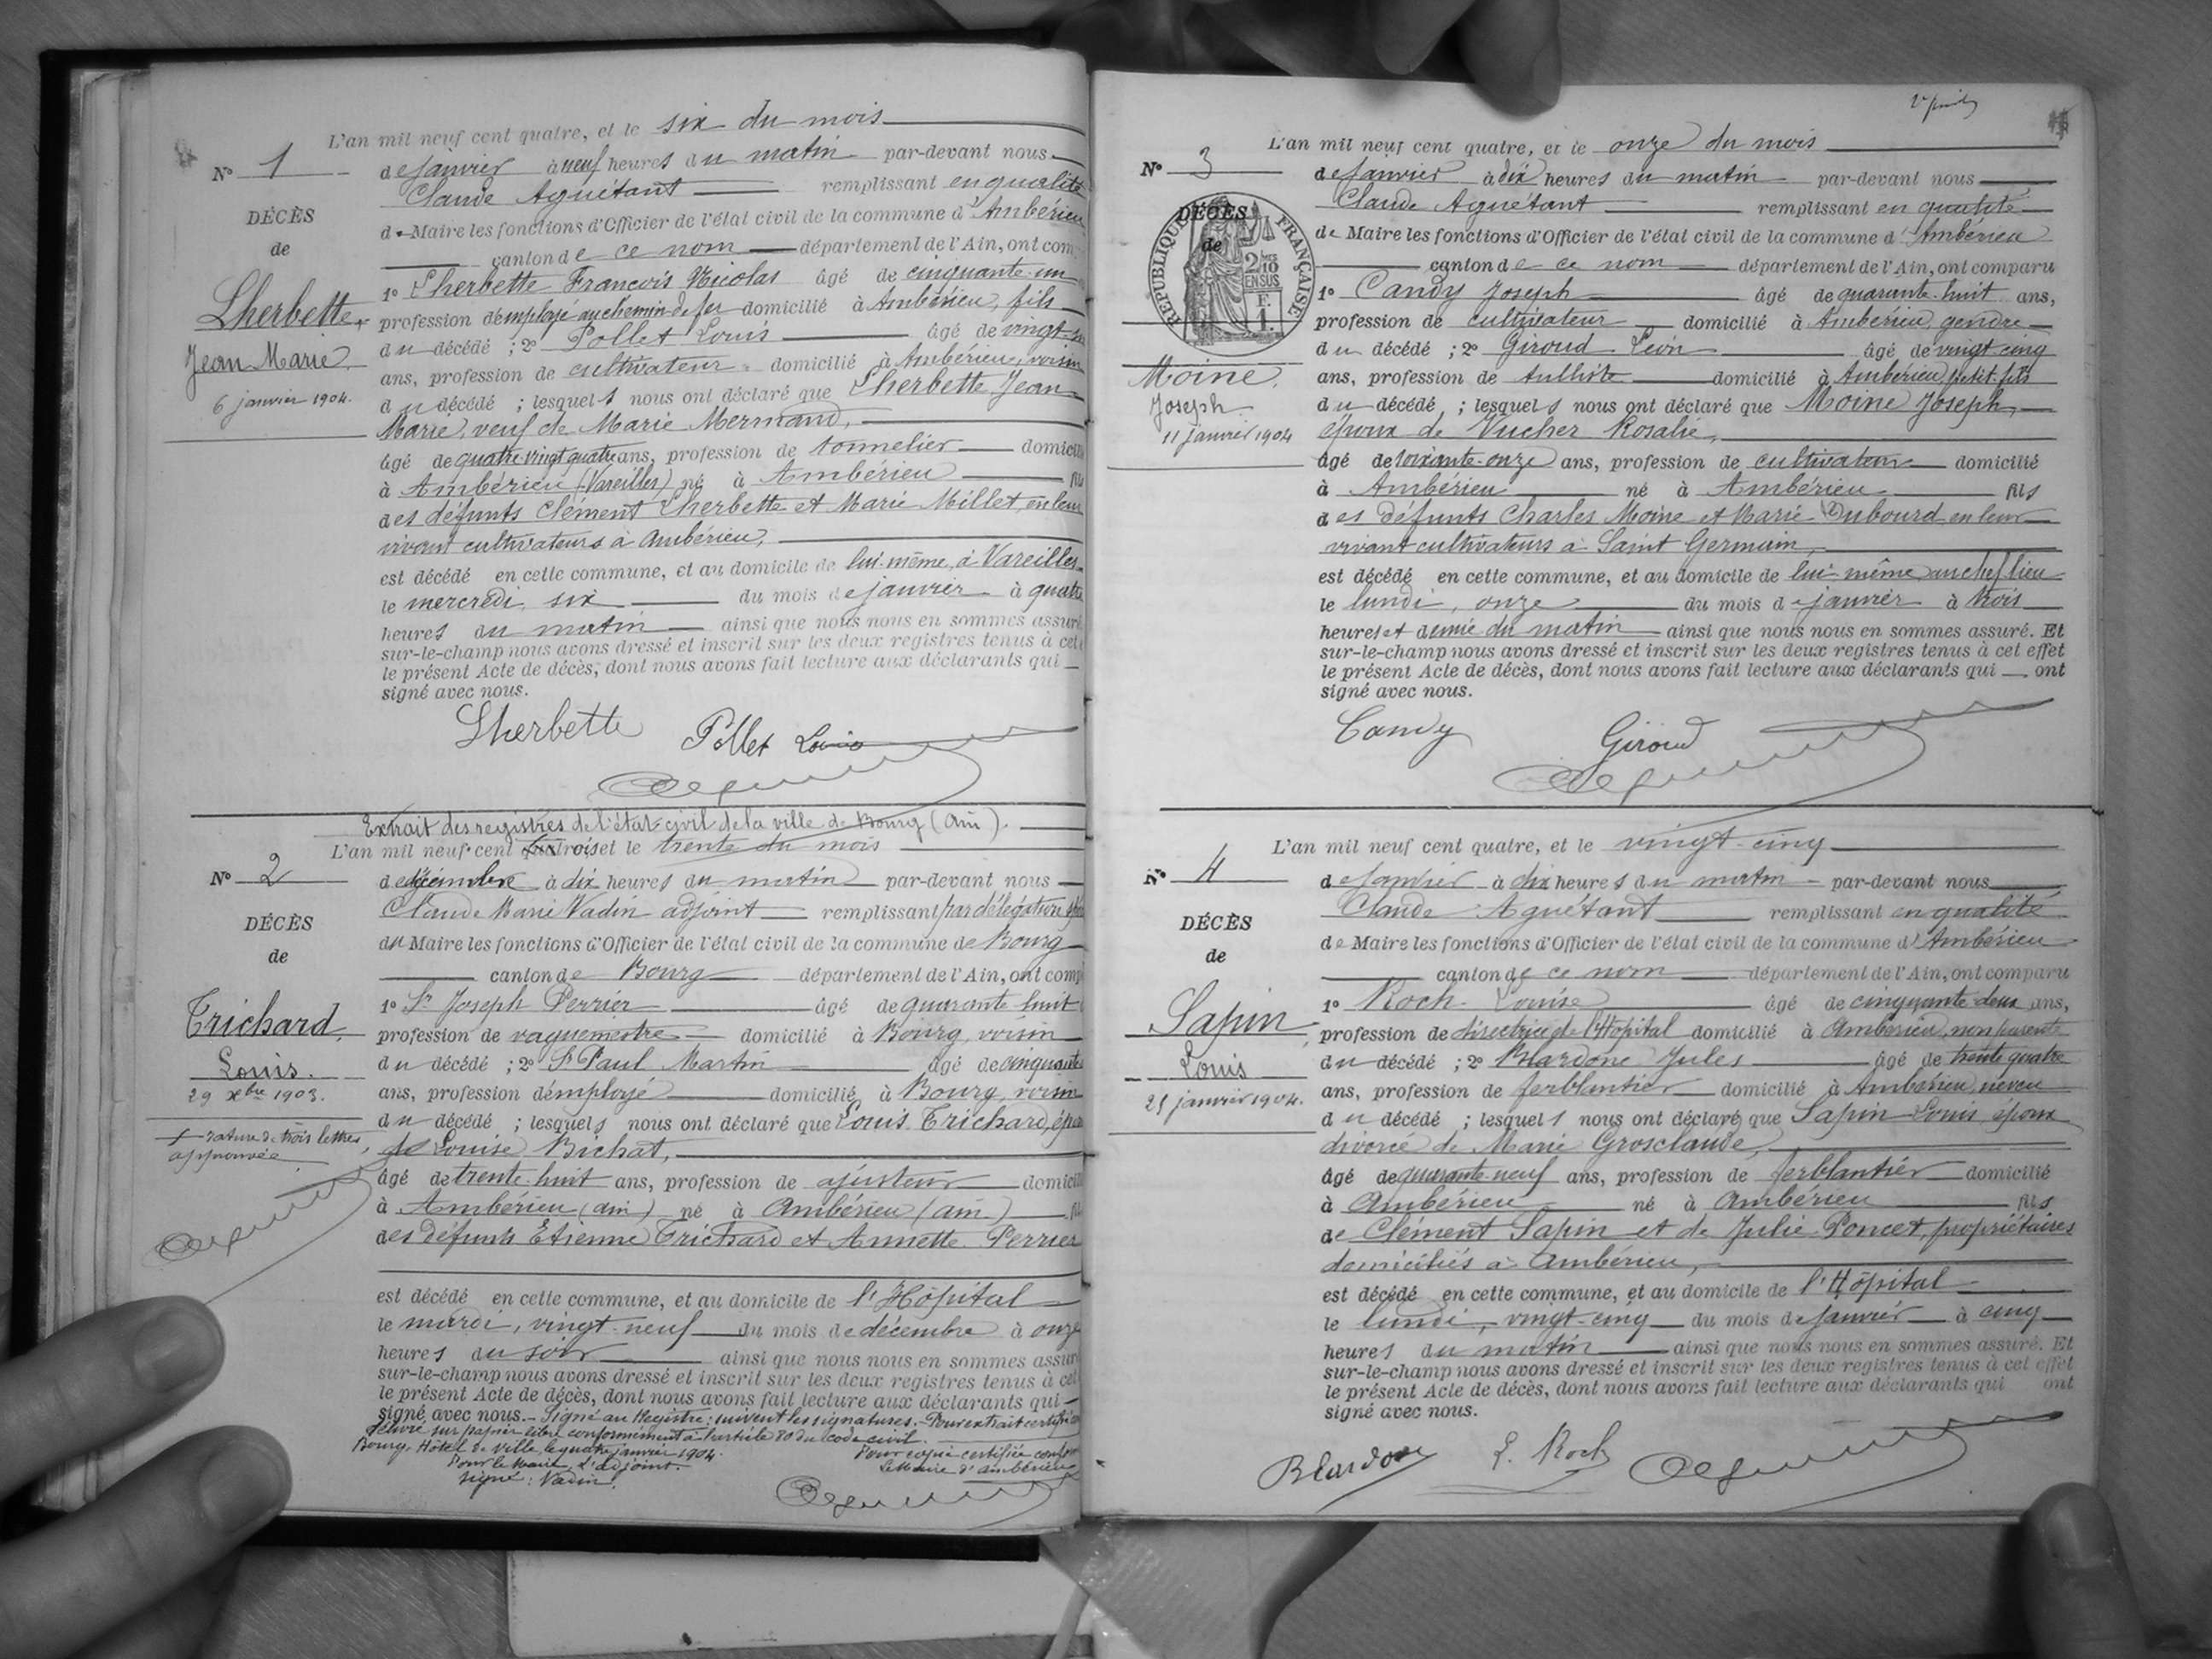 L'an mil neuf cent quatre, et le six du mois
N° 1
de janvier à neuf heures du matin par-devant nous
Claude Aguétant remplissant en qualité
DÉCÈS
de Maire les fonctions d'Officier de l'état civil de la commune d'Ambérieu
de
canton de ce nom département de l'Ain, ont com
1° Lherbette François Nicolas âgé de cinquante-un
Lherbette
profession d'employé au chemin de fer domicilié à Ambérieu, fils
du décédé ; 2° Pollet Louis âgé de vingt
Jean Marie
ans, profession de cultivateur domicilié à Ambérieu, voisin
6 janvier 1904.
du décédé ; lesquels nous ont déclaré que Lherbette Jean
Marie, veuf de Marie Mermand,
âgé de quatre-vingt quatre ans, profession de tonnelier domicilié
à Ambérieu (Vareilles) né à Ambérieu fils
des défunts Clément Lherbette et Marie Millet, en leur
vivant cultivateurs à Ambérieu,
est décédé en cette commune, et au domicile de lui-même, à Vareilles
le mercredi, six du mois de janvier à quatre
heures du matin ainsi que nous nous en sommes assuré
sur-le-champ nous avons dressé et inscrit sur les deux registres tenus à cet
le présent Acte de décès, dont nous avons fait lecture aux déclarants qui
signé avec nous.
Lherbette Pollet Louis
Extrait des registres de l'état-civil de la ville de Bourg (Ain).
L'an mil neuf cent trois et le trente du mois
N° 2
de décembre à dix heures du matin par-devant nous
Claude Marie Vadin adjoint remplissant par délégation
DÉCÈS
du Maire les fonctions d'Officier de l'état civil de la commune de Bourg
de
canton de Bourg département de l'Ain, ont comp
1° Sr Joseph Perrier âgé de quarante huit
Trichard
profession de vaguemestre domicilié à Bourg, voisin
du décédé ; 2° Sr Paul Martin âgé de cinquante
Louis.
ans, profession d'employé domicilié à Bourg, voisin
29 xbre 1903.
du décédé ; lesquels nous ont déclaré que Louis Trichard, époux
+ rature de trois lettres
approuvée
de Louise Bichat,
âgé de trente-huit ans, profession de ajusteur domicilié
à Ambérieu (ain) né à Ambérieu (ain) fils
des défunts Etienne Trichard et Annette Perrier
est décédé en cette commune, et au domicile de l'Hôpital
le mardi, vingt-neuf du mois de décembre à onze
heures du soir ainsi que nous nous en sommes assuré
sur-le-champ nous avons dressé et inscrit sur les deux registres tenus à cet
le présent Acte de décès, dont nous avons fait lecture aux déclarants qui
signé avec nous. - Signé au Registre : suivent les signatures. - Pour extrait certifié
délivré sur papier libre conformément à l'article 80 du code civil.
Bourg, Hôtel de Ville, le quatre janvier 1904.
Pour copie certifiée conforme
Pour le Maire, l'adjoint.
Le Maire d'Ambérieu
signé : Vadin.
L'an mil neuf cent quatre, et le onze du mois
N° 3
de janvier à dix heures du matin par-devant nous
Claude Aguétant remplissant en qualité
DÉCÈS
de
RÉPUBLIQUE FRANÇAISE
2/10 EN SUS
F. 1.
de Maire les fonctions d'Officier de l'état civil de la commune d'Ambérieu
canton de ce nom département de l'Ain, ont comparu
1° Candy Joseph âgé de quarante-huit ans,
profession de cultivateur domicilié à Ambérieu, gendre
du décédé ; 2° Giroud Léon âgé de vingt-cinq
Moine
ans, profession de tulliste domicilié à Ambérieu, petit-fils
Joseph
du décédé ; lesquels nous ont déclaré que Moine Joseph,
11 janvier 1904
époux de Vucher Rosalie,
âgé de soixante-onze ans, profession de cultivateur domicilié
à Ambérieu né à Ambérieu fils
des défunts Charles Moine et Marie Dubourd en leur
vivant cultivateurs à Saint Germain,
est décédé en cette commune, et au domicile de lui-même, au chef lieu
le lundi, onze du mois de janvier à trois
heures et demie du matin ainsi que nous nous en sommes assuré. Et
sur-le-champ nous avons dressé et inscrit sur les deux registres tenus à cet effet
le présent Acte de décès, dont nous avons fait lecture aux déclarants qui ont
signé avec nous.
Candy Giroud
L'an mil neuf cent quatre, et le vingt-cinq
N° 4
de Janvier à dix heures du matin par-devant nous
Claude Aguétant remplissant en qualité
DÉCÈS
de Maire les fonctions d'Officier de l'état civil de la commune d'Ambérieu
de
canton de ce nom département de l'Ain, ont comparu
1° Roch Louise âgé de cinquante-deux ans,
Sapin
profession de directrice de l'Hôpital domicilié à Ambérieu, non parente
Louis
du décédé ; 2° Blardone Jules âgé de trente quatre
ans, profession de ferblantier domicilié à Ambérieu, neveu
25 janvier 1904.
du décédé ; lesquels nous ont déclaré que Sapin Louis, époux
divorcé de Marie Grosclaude,
âgé de quarante-neuf ans, profession de ferblantier domicilié
à Ambérieu né à Ambérieu fils
de Clément Sapin et de Julie Poncet, propriétaires
domiciliés à Ambérieu,
est décédé en cette commune, et au domicile de l'Hôpital
le lundi, vingt-cinq du mois de Janvier à cinq
heures du matin ainsi que nous nous en sommes assuré. Et
sur-le-champ nous avons dressé et inscrit sur les deux registres tenus à cet effet
le présent Acte de décès, dont nous avons fait lecture aux déclarants qui ont
signé avec nous.
Blardone L. Roch